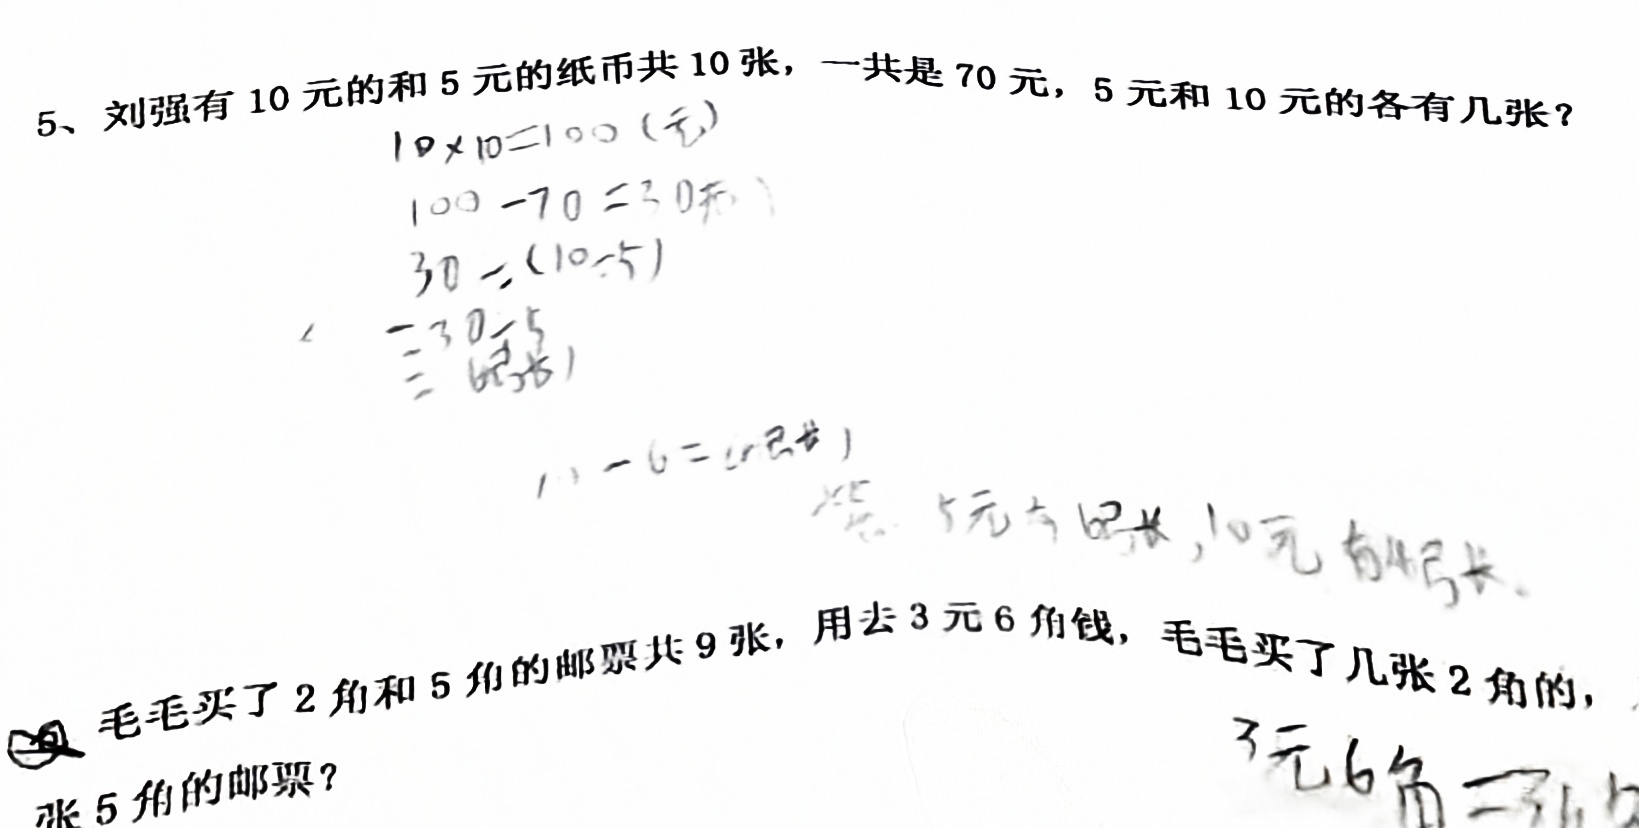 5、刘强有 10 元的和 5 元的纸币共 10 张，一共是 70 元，5 元和 10 元的各有几张？
10×10=100（元）
100-70=30元）
30÷（10-5）
=30÷5
=6（张）
-6=（张）
答 5元有6张，10元有4张.
毛毛买了 2 角和 5 角的邮票共 9 张，用去 3 元 6 角钱，毛毛买了几张 2 角的，
张 5 角的邮票？
3元6角=36